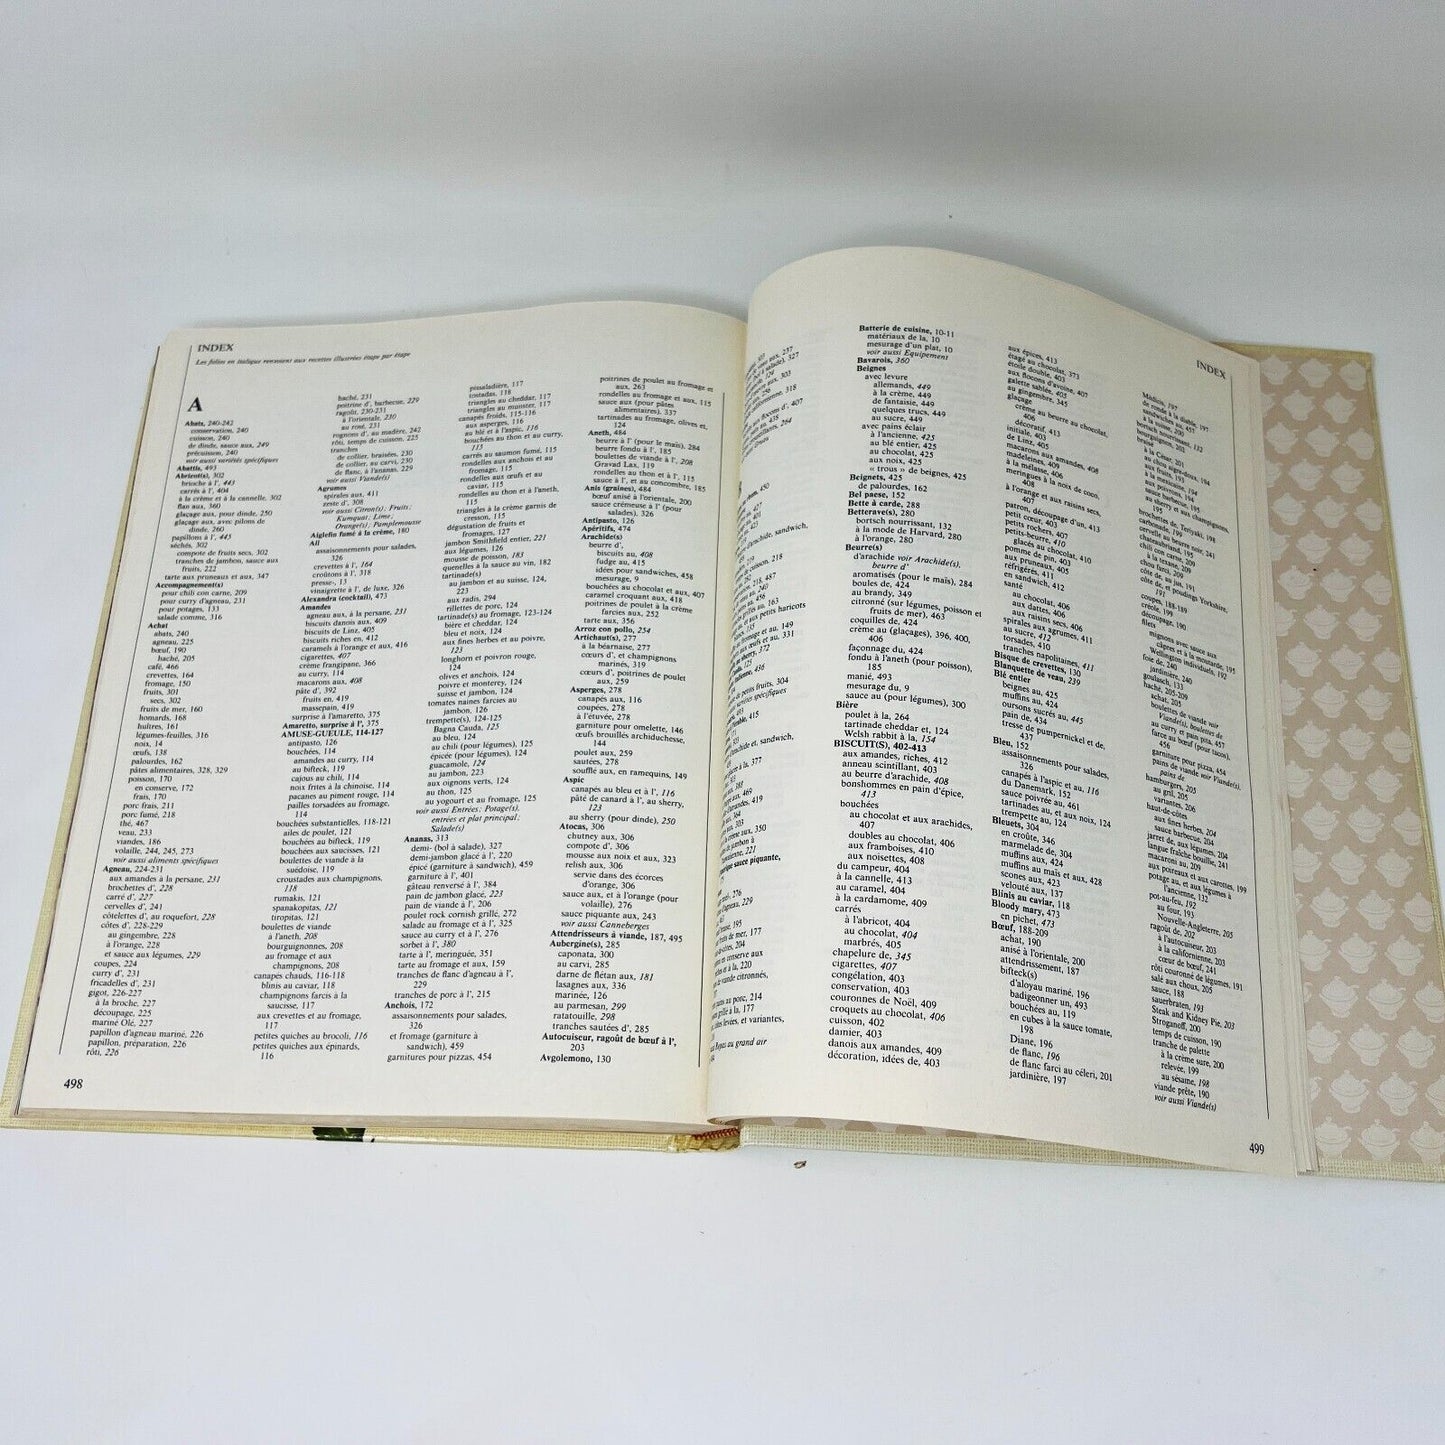 INDEX
Les folios en italique renvoient aux recettes illustrées étape par étape
A
Abats, 240-242
conservation, 240
cuisson, 240
de dinde, sauce aux, 249
précuisson, 240
voir aussi variétés spécifiques
Abattis, 493
Abricot(s), 302
brioche à l', 443
carrés à l', 404
à la crème et à la cannelle, 302
flan aux, 360
glaçage aux, pour dinde, 250
glaçage aux, avec pilons de
dinde, 260
papillons à l', 445
séchés, 302
compote de fruits secs, 302
tranches de jambon, sauce aux
fruits, 222
tarte aux pruneaux et aux, 347
Accompagnement(s)
pour chili con carne, 209
pour curry d'agneau, 231
pour potages, 133
salade comme, 316
Achat
abats, 240
agneau, 225
bœuf, 190
haché, 205
café, 466
crevettes, 164
fromage, 150
fruits, 301
secs, 302
fruits de mer, 160
homards, 168
huîtres, 161
légumes-feuilles, 316
noix, 14
œufs, 138
palourdes, 162
pâtes alimentaires, 328, 329
poisson, 170
en conserve, 172
frais, 170
porc frais, 211
porc fumé, 218
thé, 467
veau, 233
viandes, 186
volaille, 244, 245, 273
voir aussi aliments spécifiques
Agneau, 224-231
aux amandes à la persane, 231
brochettes d', 228
carré d', 227
cervelles d', 241
côtelettes d', au roquefort, 228
côtes d', 228-229
au gingembre, 228
à l'orange, 228
et sauce aux légumes, 229
coupes, 224
curry d', 231
fricadelles d', 231
gigot, 226-227
à la broche, 227
découpage, 225
mariné Olé, 227
papillon d'agneau mariné, 226
papillon, préparation, 226
rôti, 226
haché, 231
poitrine d', barbecue, 229
ragoût, 230-231
à l'orientale, 230
au rosé, 231
rognons d', au madère, 242
rôti, temps de cuisson, 225
tranches
de collier, braisées, 230
de collier, au carvi, 230
de flanc, à l'ananas, 229
voir aussi Viande(s)
Agrumes
spirales aux, 411
zeste d', 308
voir aussi Citron(s); Fruits;
Kumquat; Lime;
Orange(s); Pamplemousse
Aiglefin fumé à la crème, 180
Ail
assaisonnements pour salades,
326
crevettes à l', 164
croûtons à l', 318
presse-, 13
vinaigrette à l', de luxe, 326
Alexandra (cocktail), 473
Amandes
agneau aux, à la persane, 231
biscuits danois aux, 409
biscuits de Linz, 405
biscuits riches en, 412
caramels à l'orange et aux, 416
cigarettes, 407
crème frangipane, 366
au curry, 114
macarons aux, 408
pâte d', 392
fruits en, 419
massepain, 419
surprise à l'amaretto, 375
Amaretto, surprise à l', 375
AMUSE-GUEULE, 114-127
antipasto, 126
bouchées, 114
amandes au curry, 114
au bifteck, 119
cajous au chili, 114
noix frites à la chinoise, 114
pacanes au piment rouge, 114
pailles torsadées au fromage,
114
bouchées substantielles, 118-121
ailes de poulet, 121
bouchées au bifteck, 119
bouchées aux saucisses, 121
boulettes de viande à la
suédoise, 119
croustades aux champignons,
118
rumakis, 121
spanakopitas, 121
tiropitas, 121
boulettes de viande
à l'aneth, 208
bourguignonnes, 208
au fromage et aux
champignons, 208
canapés chauds, 116-118
blinis au caviar, 118
champignons farcis à la
saucisse, 117
aux crevettes et au fromage,
117
petites quiches au brocoli, 116
petites quiches aux épinards,
116
pissaladière, 117
tostadas, 118
triangles au cheddar, 117
triangles au munster, 117
canapés froids, 115-116
aux asperges, 116
au blé et à l'aspic, 116
bouchées au thon et au curry,
115
carrés au saumon fumé, 115
rondelles aux anchois et au
fromage, 115
rondelles aux œufs et au
caviar, 115
rondelles au thon et à l'aneth,
115
triangles à la crème garnis de
cresson, 115
dégustation de fruits et
fromages, 127
jambon Smithfield entier, 221
aux légumes, 126
mousse de poisson, 183
quenelles à la sauce au vin, 182
tartinade(s)
au jambon et au suisse, 124,
223
aux radis, 294
rillettes de porc, 124
tartinade(s) au fromage, 123-124
bière et cheddar, 124
bleu et noix, 124
aux fines herbes et au poivre,
123
longhorn et poivron rouge,
124
olives et anchois, 124
poivre et monterey, 124
suisse et jambon, 124
tomates naines farcies au
jambon, 126
trempette(s), 124-125
Bagna Cauda, 125
au bleu, 124
au chili (pour légumes), 125
épicée (pour légumes), 124
guacamole, 124
au jambon, 223
aux oignons verts, 124
au thon, 125
au yogourt et au fromage, 125
voir aussi Entrées; Potage(s),
entrées et plat principal;
Salade(s)
Ananas, 313
demi- (bol à salade), 327
demi-jambon glacé à l', 220
épicé (garniture à sandwich), 459
garniture à l', 401
gâteau renversé à l', 384
pain de jambon glacé, 223
pain de viande à l', 206
poulet rock cornish grillé, 272
salade au fromage et à l', 325
sauce au curry et à l', 276
sorbet à l', 380
tarte à l', meringuée, 351
tarte au fromage et aux, 159
tranches de flanc d'agneau à l',
229
tranches de porc à l', 215
Anchois, 172
assaisonnements pour salades,
326
et fromage (garniture à
sandwich), 459
garnitures pour pizzas, 454
poitrines de poulet au fromage et
aux, 263
rondelles au fromage et aux, 115
sauce aux (pour pâtes
alimentaires), 337
tartinades au fromage, olives et,
124
Aneth, 484
beurre à l' (pour le maïs), 284
beurre fondu à l', 185
boulettes de viande à l', 208
Gravad Lax, 119
rondelles au thon et à l', 115
sauce à l', et au concombre, 185
Anis (graines), 484
bœuf anisé à l'orientale, 200
sauce crémeuse à l' (pour
salades), 326
Antipasto, 126
Apéritifs, 474
Arachide(s)
beurre d',
biscuits au, 408
fudge au, 415
idées pour sandwiches, 458
mesurage, 9
bouchées au chocolat et aux, 407
caramel croquant aux, 418
poitrines de poulet à la crème
farcies aux, 252
tarte aux, 356
Arroz con pollo, 254
Artichaut(s), 277
à la béarnaise, 277
cœurs d', et champignons
marinés, 319
cœurs d', poitrines de poulet
aux, 259
Asperges, 278
canapés aux, 116
coupées, 278
à l'étuvée, 278
garniture pour omelette, 146
œufs brouillés archiduchesse,
144
poulet aux, 259
sautées, 278
soufflé aux, en ramequins, 149
Aspic
canapés au bleu et à l', 116
pâté de canard à l', au sherry,
123
au sherry (pour dinde), 250
Atocas, 306
chutney aux, 306
compote d', 306
mousse aux noix et aux, 323
relish aux, 306
servie dans des écorces
d'orange, 306
sauce aux, et à l'orange (pour
volaille), 276
sauce piquante aux, 243
voir aussi Canneberges
Attendrisseurs à viande, 187, 495
Aubergine(s), 285
caponata, 300
au carvi, 285
darne de flétan aux, 181
lasagnes aux, 336
marinée, 126
au parmesan, 299
ratatouille, 298
tranches sautées d', 285
Autocuiseur, ragoût de bœuf à l',
203
Avgolemono, 130
498
INDEX
Batterie de cuisine, 10-11
matériaux de la, 10
mesurage d'un plat, 10
voir aussi Equipement
Bavarois, 360
Beignes
avec levure
allemands, 449
à la crème, 449
de fantaisie, 449
quelques trucs, 449
au sucre, 449
avec pains éclair
à l'ancienne, 425
au blé entier, 425
au chocolat, 425
aux noix, 425
« trous » de beignes, 425
Beignets, 425
de palourdes, 162
Bel paese, 152
Bette à carde, 288
Betterave(s), 280
bortsch nourrissant, 132
à la mode de Harvard, 280
à l'orange, 280
Beurre(s)
d'arachide voir Arachide(s),
beurre d'
aromatisés (pour le maïs), 284
boules de, 424
au brandy, 349
citronné (sur légumes, poisson et
fruits de mer), 463
coquilles de, 424
crème au (glaçages), 396, 400,
406
façonnage du, 424
fondu à l'aneth (pour poisson),
185
manié, 493
mesurage du, 9
sauce au (pour légumes), 300
Bière
poulet à la, 264
tartinade cheddar et, 124
Welsh rabbit à la, 154
BISCUIT(S), 402-413
aux amandes, riches, 412
anneau scintillant, 403
au beurre d'arachide, 408
bonshommes en pain d'épice,
413
bouchées
au chocolat et aux arachides,
407
doubles au chocolat, 406
aux framboises, 410
aux noisettes, 408
au campeur, 404
à la cannelle, 413
au caramel, 404
à la cardamome, 409
carrés
à l'abricot, 404
au chocolat, 404
marbrés, 405
chapelure de, 345
cigarettes, 407
congélation, 403
conservation, 403
couronnes de Noël, 409
croquets au chocolat, 406
cuisson, 402
damier, 403
danois aux amandes, 409
décoration, idées de, 403
aux épices, 413
étagé au chocolat, 373
étoile double, 403
aux flocons d'avoine, 407
galette sablée, 405
au gingembre, 345
glaçage
crème au beurre au chocolat,
406
décoratif, 413
initiale, 403
de Linz, 405
macarons aux amandes, 408
madeleines, 409
à la mélasse, 406
meringues à la noix de coco,
408
à l'orange et aux raisins secs,
407
patron, découpage d'un, 413
petit cœur, 403
petits rochers, 407
petit-beurre, 410
glacés au chocolat, 410
pomme de pin, 403
aux pruneaux, 405
réfrigérés, 411
en sandwich, 412
au chocolat, 406
aux dattes, 406
aux raisins secs, 406
spirales aux agrumes, 411
au sucre, 412
torsades, 410
tranches napolitaines, 411
Bisque de crevettes, 130
Blanquette de veau, 239
Blé entier
beignes au, 425
muffins au, 424
oursons sucrés au, 445
pain de, 434
tresse de pumpernickel et de,
437
Bleu, 152
assaisonnements pour salades,
326
canapés à l'aspic et au, 116
du Danemark, 152
sauce poivrée au, 461
tartinades au, et aux noix, 124
trempette au, 124
Bleuets, 304
en croûte, 346
marmelade de, 304
muffins aux, 424
muffins au maïs et aux, 428
scones aux, 423
velouté aux, 137
Blinis au caviar, 118
Bloody mary, 473
en pichet, 473
Bœuf, 188-209
achat, 190
anisé à l'orientale, 200
attendrissement, 187
bifteck(s)
d'aloyau mariné, 196
badigeonner un, 493
bouchées au, 119
en cubes à la sauce tomate,
198
Diane, 196
de flanc, 196
de flanc farci au céleri, 201
jardinière, 197
coupes, 188-189
créole, 199
découpage, 190
filets
mignons avec sauce aux
câpres et à la moutarde, 195
Wellington individuels, 192
foie de, 240
jardinière, 240
goulasch, 133
haché, 205-209
achat, 205
garniture pour pizza, 454
hamburgers, 205
au gril, 205
variantes, 206
haut-de-côtes
aux fines herbes, 204
sauce barbecue, 204
jarret de, aux légumes, 204
langue fraîche bouillie, 241
macaroni au, 209
pot-au-feu, 192
au four, 193
Nouvelle-Angleterre, 205
ragoût de, 202
à l'autocuiseur, 203
à la californienne, 203
cœur de bœuf, 241
rôti couronné de légumes, 191
salé aux choux, 205
sauce, 188
sauerbraten, 193
Steak and Kidney Pie, 203
Stroganoff, 200
temps de cuisson, 190
tranche de palette
à la crème sure, 200
relevée, 199
au sésame, 198
viande prête, 190
voir aussi Viande(s)
499